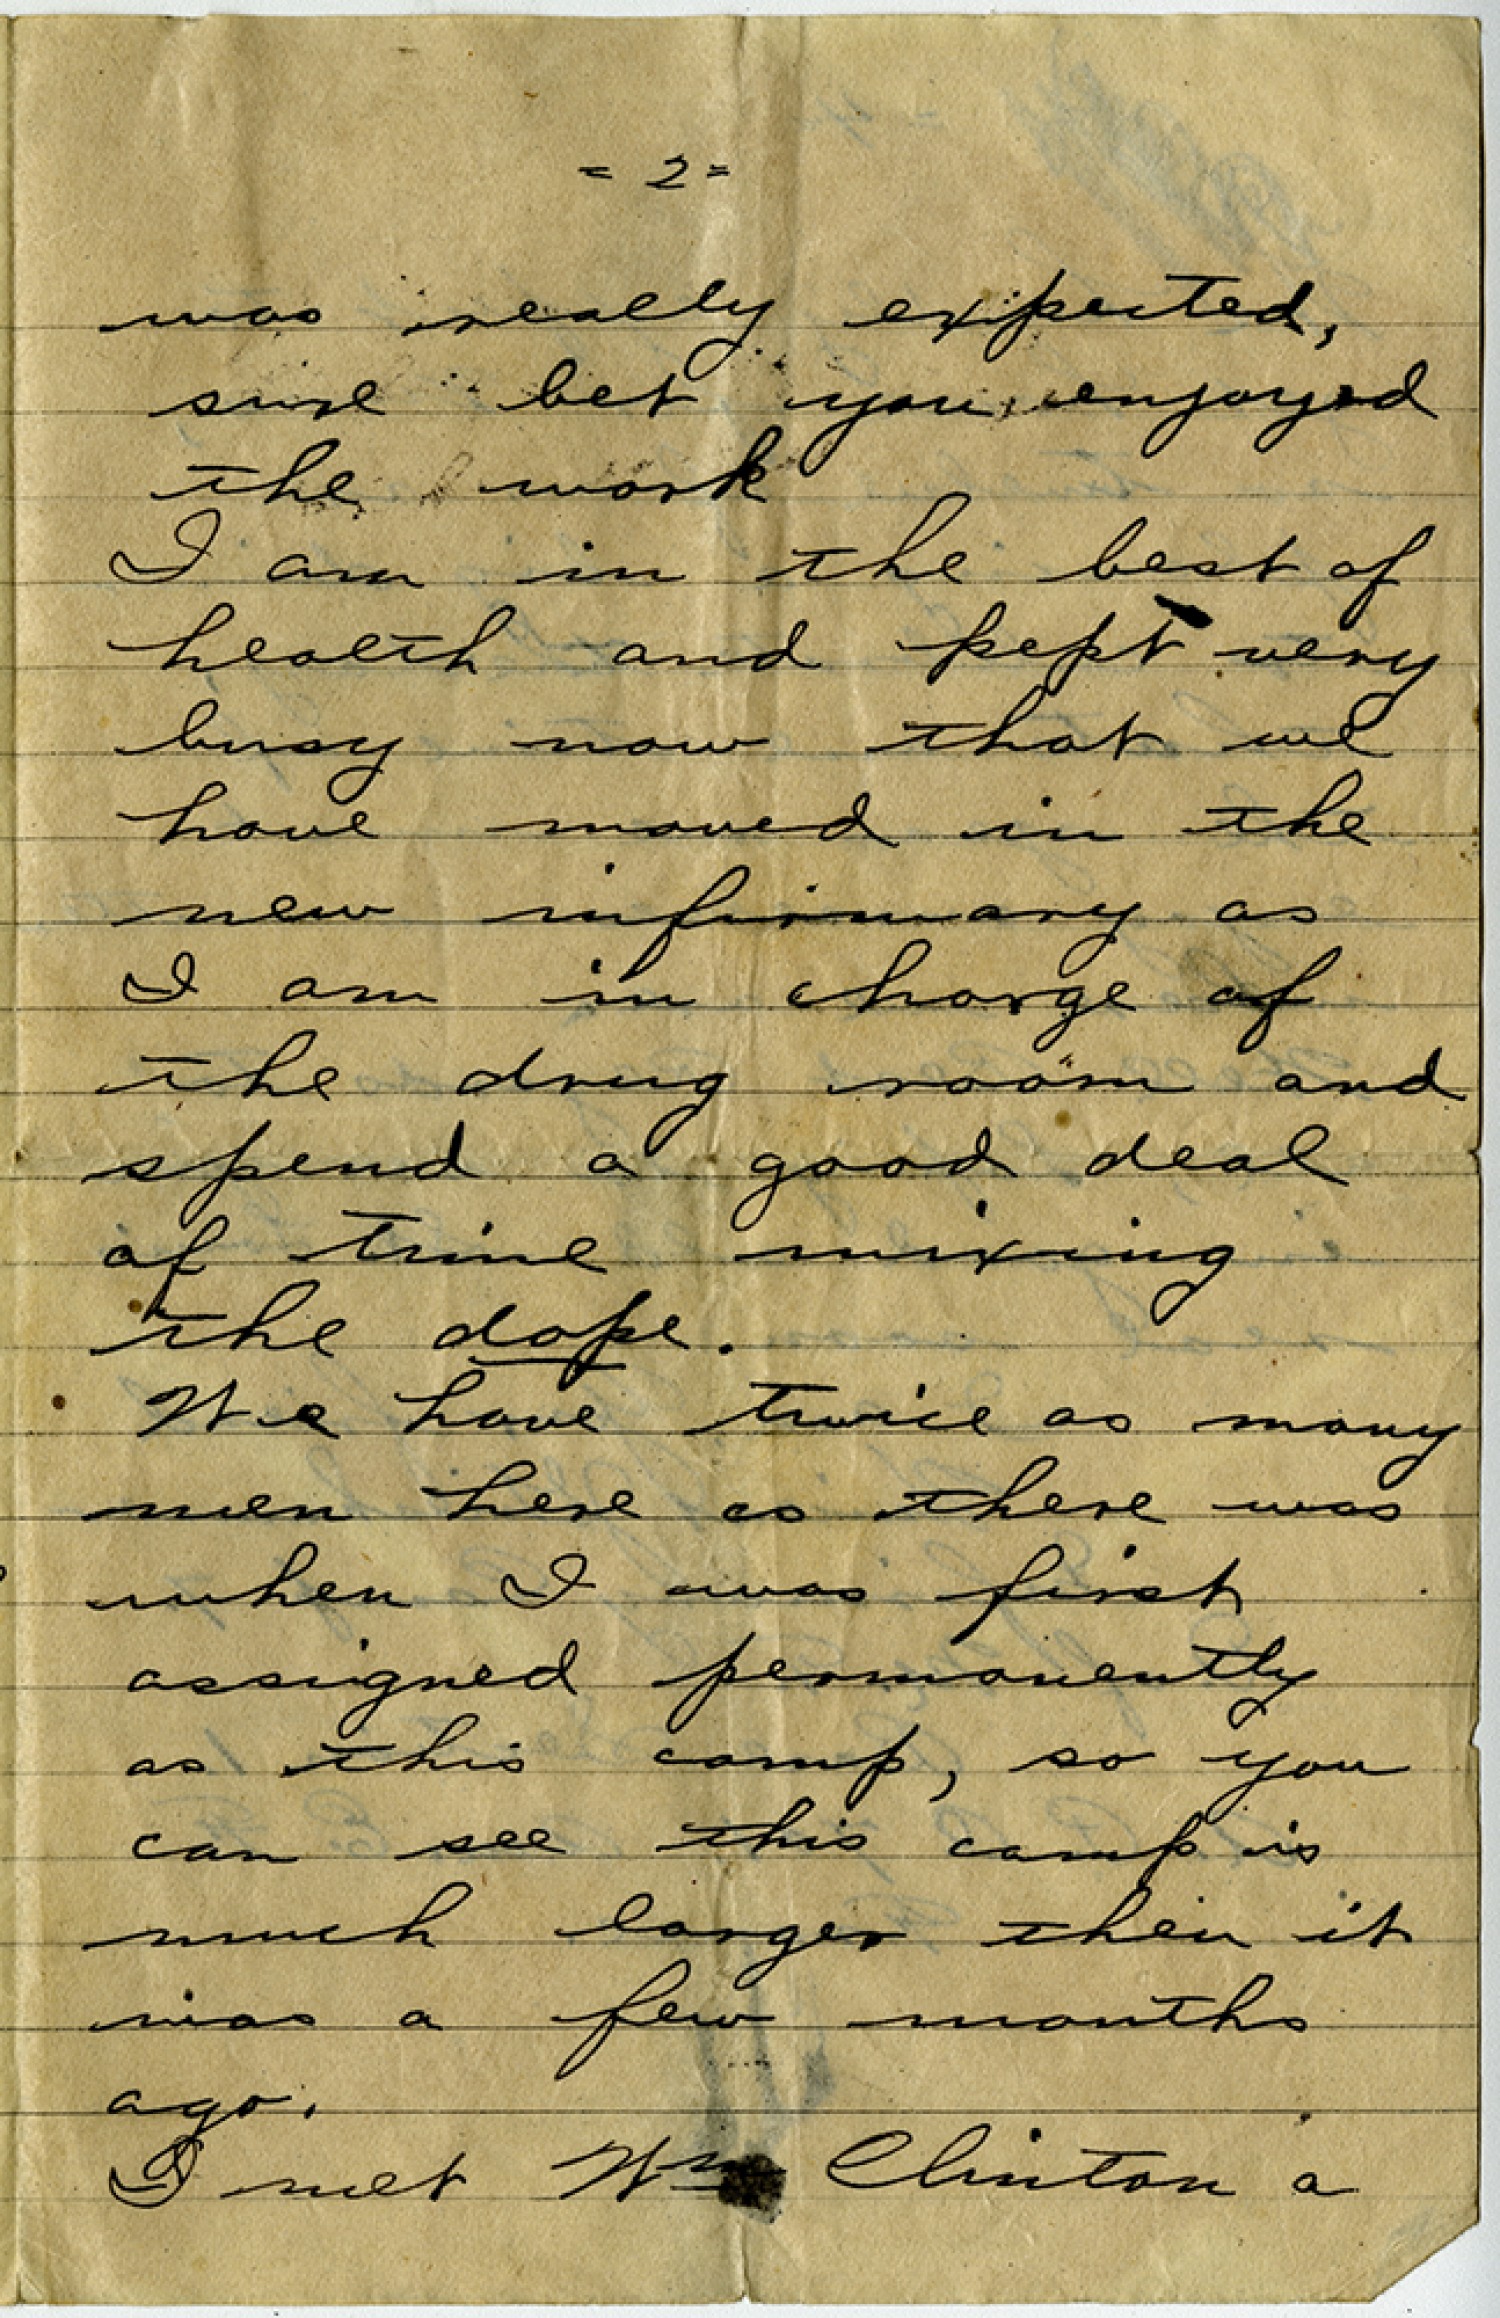 = 2 =
was really expected,
sure bet you enjoyed
the work
I am in the best of
health and pept very
busy now that we
have moved in the
new infirmary as
I am in charge of
the drug room and
spend a good deal
of time mixing
the dope.
We have twice as many
men here as there was
when I was first
assigned permanently
as this camp, so you
can see this camp is
much larger then it
was a few months
ago.
I met Wm Clinton a